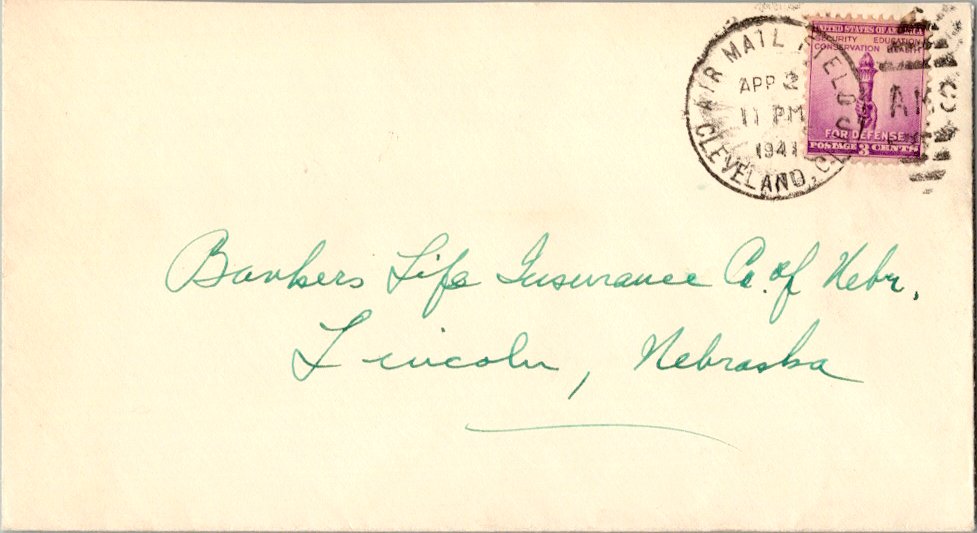 AIR MAIL FIELD
APR 2
11 PM
1941
CLEVELAND, O.
UNITED STATES OF AMERICA
SECURITY EDUCATION
CONSERVATION
FOR DEFENSE
POSTAGE 3 CENTS
AMS
Bankers Life Insurance Co. of Nebr.
Lincoln, Nebraska